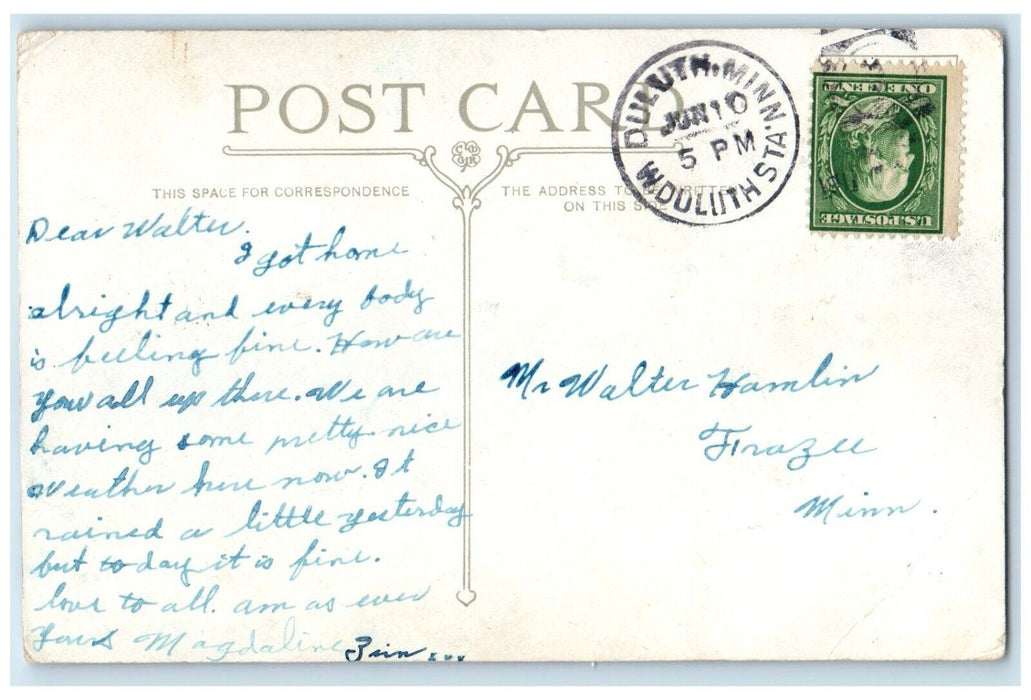 POST CARD
DULUTH, MINN.
JUN 10
5 PM
W. DULUTH STA.
ONE CENT
U.S. POSTAGE
THIS SPACE FOR CORRESPONDENCE
THE ADDRESS TO BE WRITTEN
ON THIS SIDE
Dear Walter.
I got home
alright and every body
is feeling fine. How are
you all up there. We are
having some pretty nice
weather here now. It
rained a little yesterday
but to day it is fine.
love to all. am as ever
yours Magdaline
Mr Walter Hamlin
Frazee
Minn.